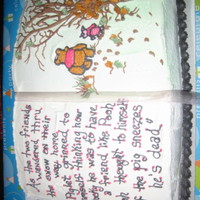 As the two friends
wandered thru
the snow on their
way home,
Piglet grinned to
himself thinking how
lucky he was to have
a friend like Pooh
Pooh thought to himself
"If the pig sneezes
he's dead"